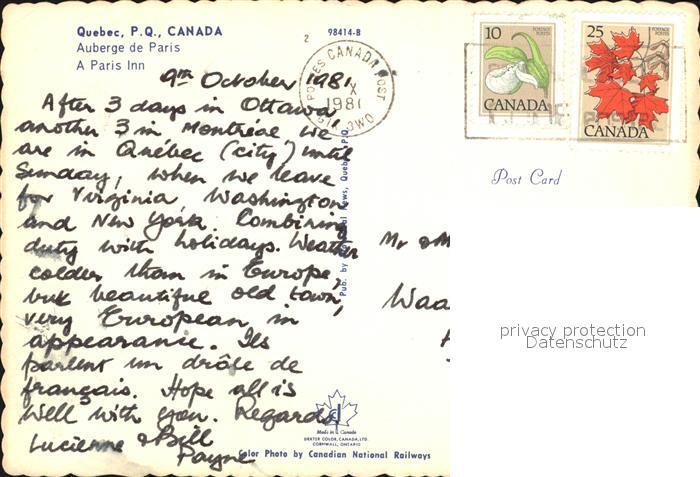 Quebec, P.Q., CANADA
Auberge de Paris
A Paris Inn
98414-B
2
9th October 1981
After 3 days in Ottawa
another 3 in Montréal we
are in Québec (city) until
Sunday, when we leave
for Virginia, Washington
and New York. Combining
duty with holidays. Weather
colder than in Europe,
but beautiful old town,
very European in
appearance. Ils
parlent un drôle de
français. Hope all is
well with you. Regards
Lucienne & Bill
Payne
POSTES CANADA POST
X
1981
10
POSTAGE
POSTES
CANADA
25
POSTAGE
POSTES
CANADA
Post Card
Mr & M
Waa
Pub. by News, Quebec, P.Q.
Made in Canada
DEXTER COLOR, CANADA, LTD.
CORNWALL, ONTARIO
Color Photo by Canadian National Railways
privacy protection
Datenschutz